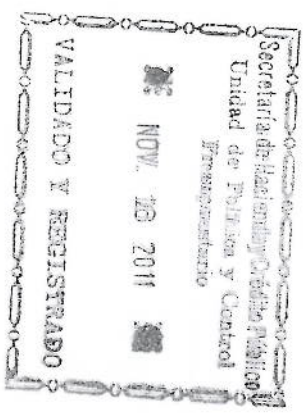 Secretaría de Hacienda y Crédito Público
Unidad de Política y Control
Presupuestario
NOV. 16 2011
VALIDADO Y REGISTRADO